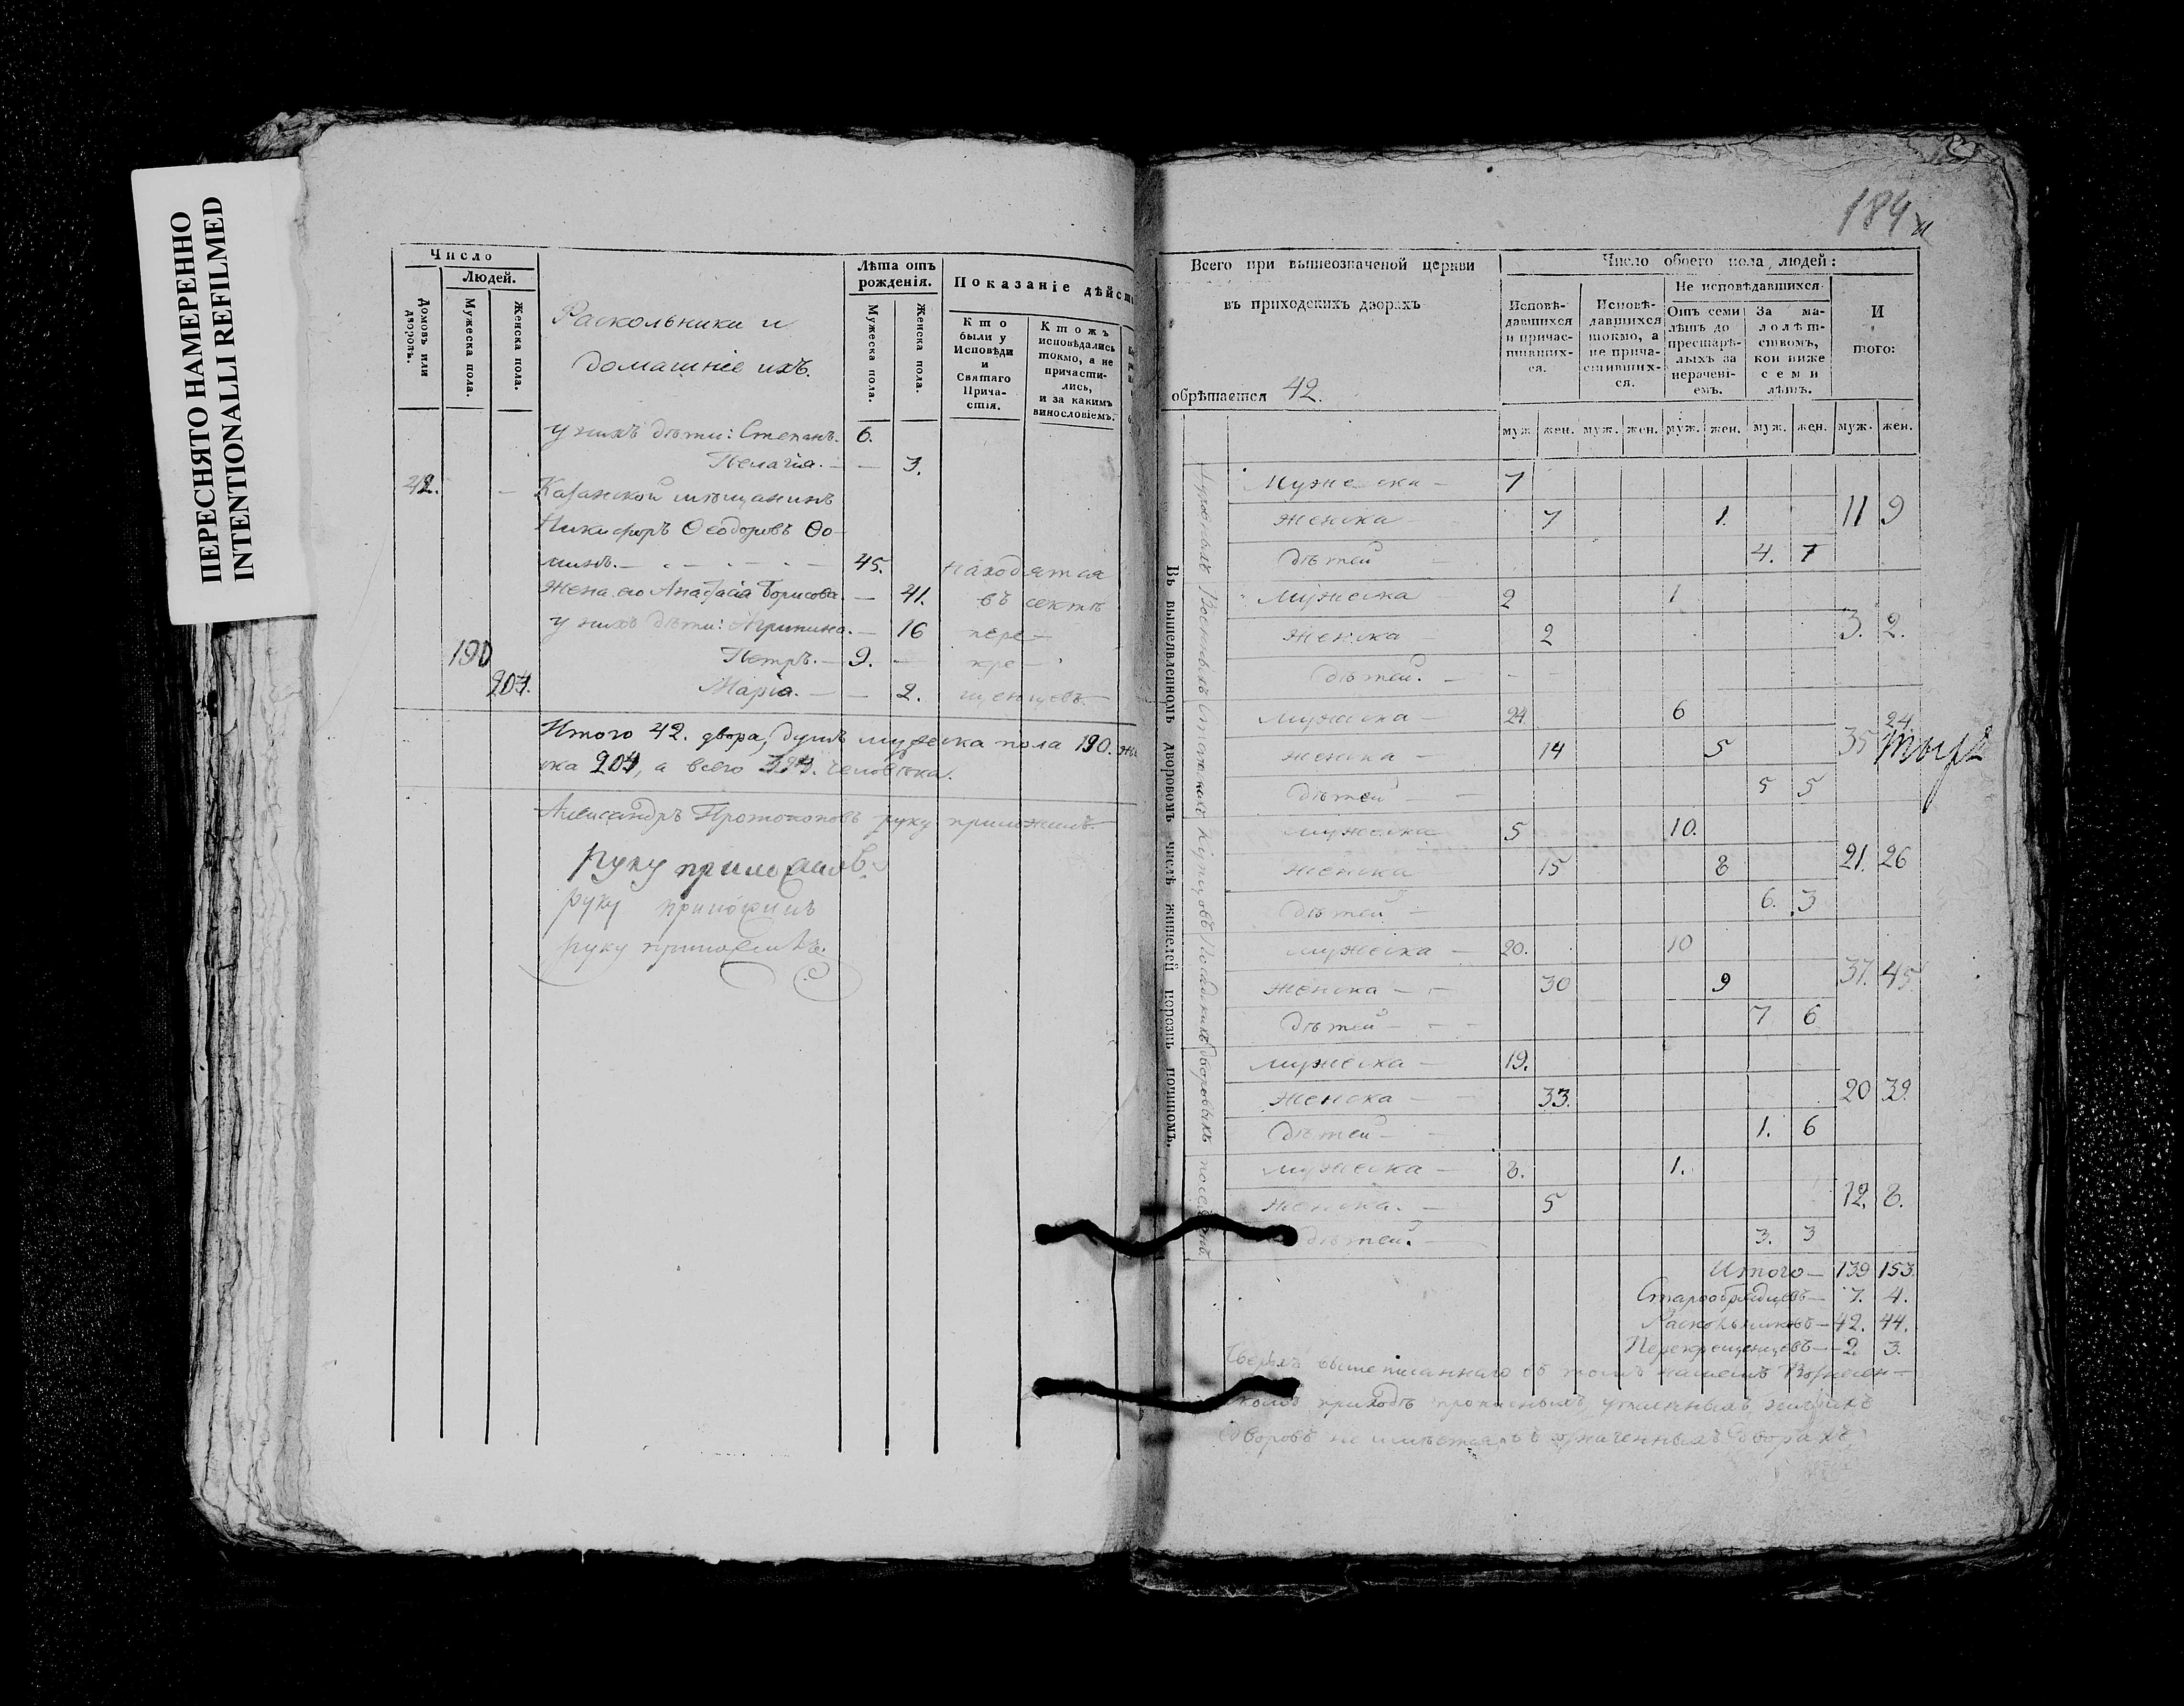 ПЕРЕСНЯТО НАМЕРЕННО
INTENTIONALLI REFILMED
Число
Людей.
Домовъ или дворовъ.
Мужеска пола.
Женска пола.
Раскольники и
домашніе ихъ.
Лѣта отъ рожденія.
Мужеска пола.
Женска пола.
Показаніе дѣйст
Кто были у Исповѣди и Святаго Причастія.
Ктожъ исповѣдались токмо, а не причастились, и за какимъ винословіемъ.
у нихъ дѣти: Степанъ. 6.
Пелагія. — — 3.
42. Казанской мѣщанинъ
Никифоръ Ѳеодоровъ Ѳо-
минъ. — 45. находятся
Жена его Анастасія Борисова. — 41. въ сектѣ
у нихъ дѣти: Агрипина. — 16 пере-
190 Петръ. — 9. — кре-
204. Марія. — — 2. щенцевъ
Итого 42. двора, душъ мужеска пола 190. же
ска 204, а всего человѣка.
Александръ Протопоповъ руку приложилъ.
руку приложилъ
руку приложилъ
руку приложилъ.
184
Всего при вышеозначеной церкви
въ приходскихъ дворахъ
обрѣтается 42.
Число обоего пола людей:
Исповѣдавшихся и причастившихся.
Исповѣдавшихся токмо, а не причастившихся.
Не исповѣдавшихся
Отъ семи лѣтъ до престарѣлыхъ за нерачені-емъ.
За малолѣтствомъ, кои ниже семи лѣтъ.
И того:
муж. жен. муж. жен. муж. жен. муж. жен. муж. жен.
Въ вышеявленномъ дворовомъ числѣ жителей порознь почином.
Духовныхъ
Военныхъ
Статскихъ
Купцовъ
Посадскихъ
дворовыхъ
поселянъ
Мужеска — 7
Женска 7 1. 11 9
дѣтей 4. 7
Мужеска 2 1
Женска 2 3. 2.
дѣтей. —
Мужеска — 24. 6
Женска — 14 5 35 24
дѣтей — 5 5
Мужеска 5 10.
Женска 15 8 21. 26
дѣтей — 6. 3
Мужеска — 20. 10
Женска — 30 9 37. 45
дѣтей — 7 6
Мужеска — 19.
Женска — 33. 20 39.
дѣтей — 1. 6
Мужеска — 8. 1.
Женска. — 5 12. 8.
дѣтей. — 3. 3
Итого — 139 153
Старообрядцевъ — 7. 4.
Раскольниковъ — 42. 44.
Перекрещенцевъ — 2. 3.
Сверхъ вышеписаннаго въ томъ нашемъ Вознесен-
скомъ приходѣ прописныхъ, утаенныхъ жилыхъ
дворовъ не имѣется и въ означенныхъ дворахъ